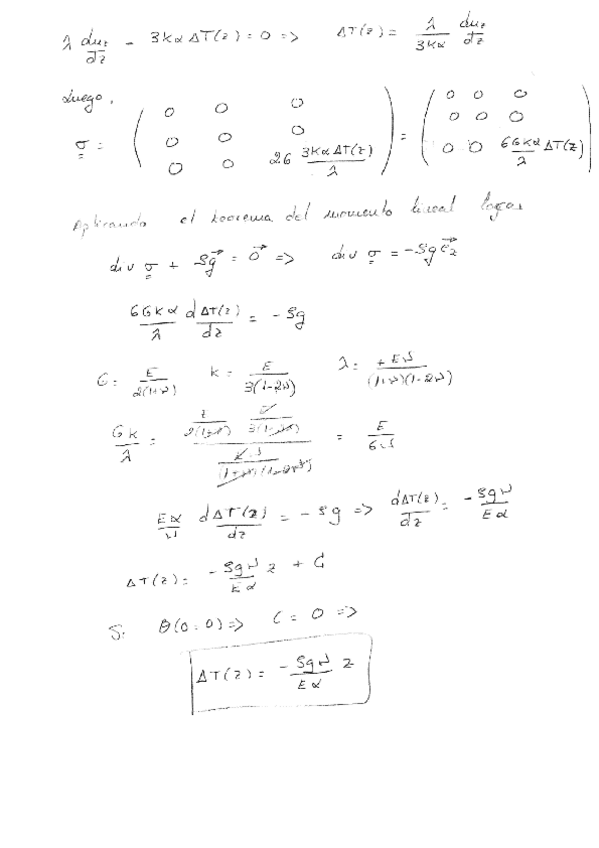 λ du_z/dz - 3Kα ΔT(z) = 0 => ΔT(z) = λ/3Kα du_z/dz
Luego,
σ = ( 0 0 0 ; 0 0 0 ; 0 0 2G 3KαΔT(z)/λ ) = ( 0 0 0 ; 0 0 0 ; 0 0 6GKαΔT(z)/λ )
Aplicando el teorema del momento lineal
div σ + ρg⃗ = 0⃗ => div σ = -ρg e⃗z
6GKα/λ dΔT(z)/dz = -ρg
G = E/2(1+ν) K = E/3(1-2ν) λ = + Eν/(1+ν)(1-2ν)
GK/λ = = E/6ν
Eα/ν dΔT(z)/dz = -ρg => dΔT(z)/dz = -ρgν/Eα
ΔT(z) = -ρgν/Eα z + C
Si θ(0=0) => C = 0 =>
ΔT(z) = -ρgν/Eα z